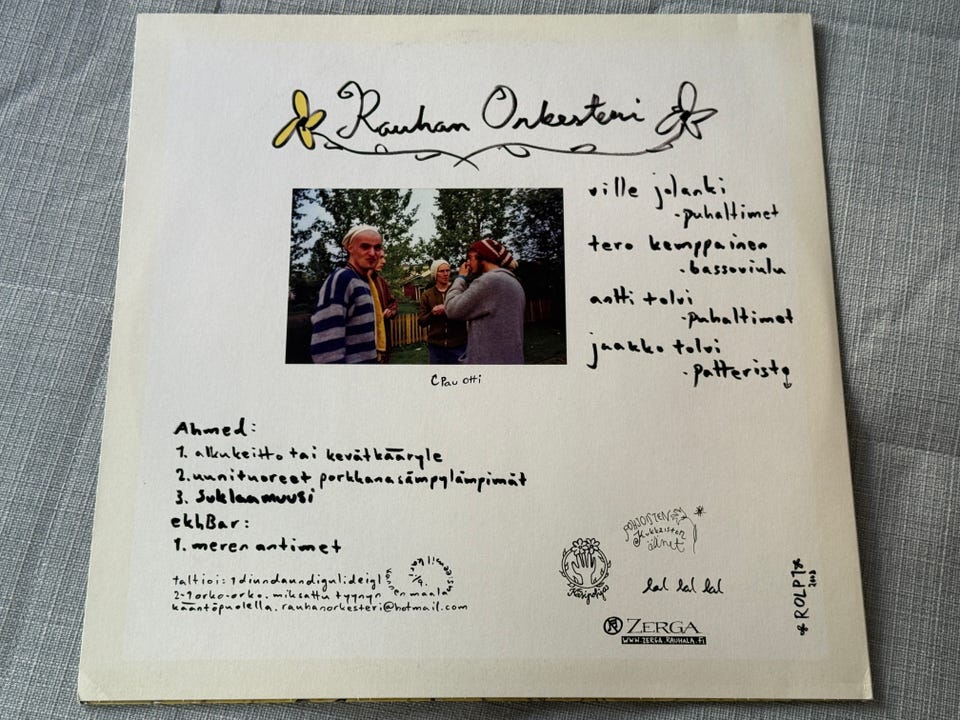 Rauhan Orkesteri
ville jolanki
-puhaltimet
tero kemppainen
-bassoviulu
antti tolvi
-puhaltimet
jaakko tolvi
-patteristo
Pau otti
Ahmed:
1. alkukeitto tai kevätkääryle
2. uunituoreet porkkanasämpylämpimät
3. Suklaamuusi
ekhBar:
1. meren antimet
taltioi: 1 diundaundiguli.deigl
2-1 orko-orko. miksattu tyynyn
kääntöpuolella. rauhanorkesteri@hotmail.com
kannen maalasi
POHJOISTEN
Kukkaisten
äänet
Käsipohja
lal lal lal
ZERGA
WWW.ZERGA.RAUHALA.FI
ROLP1